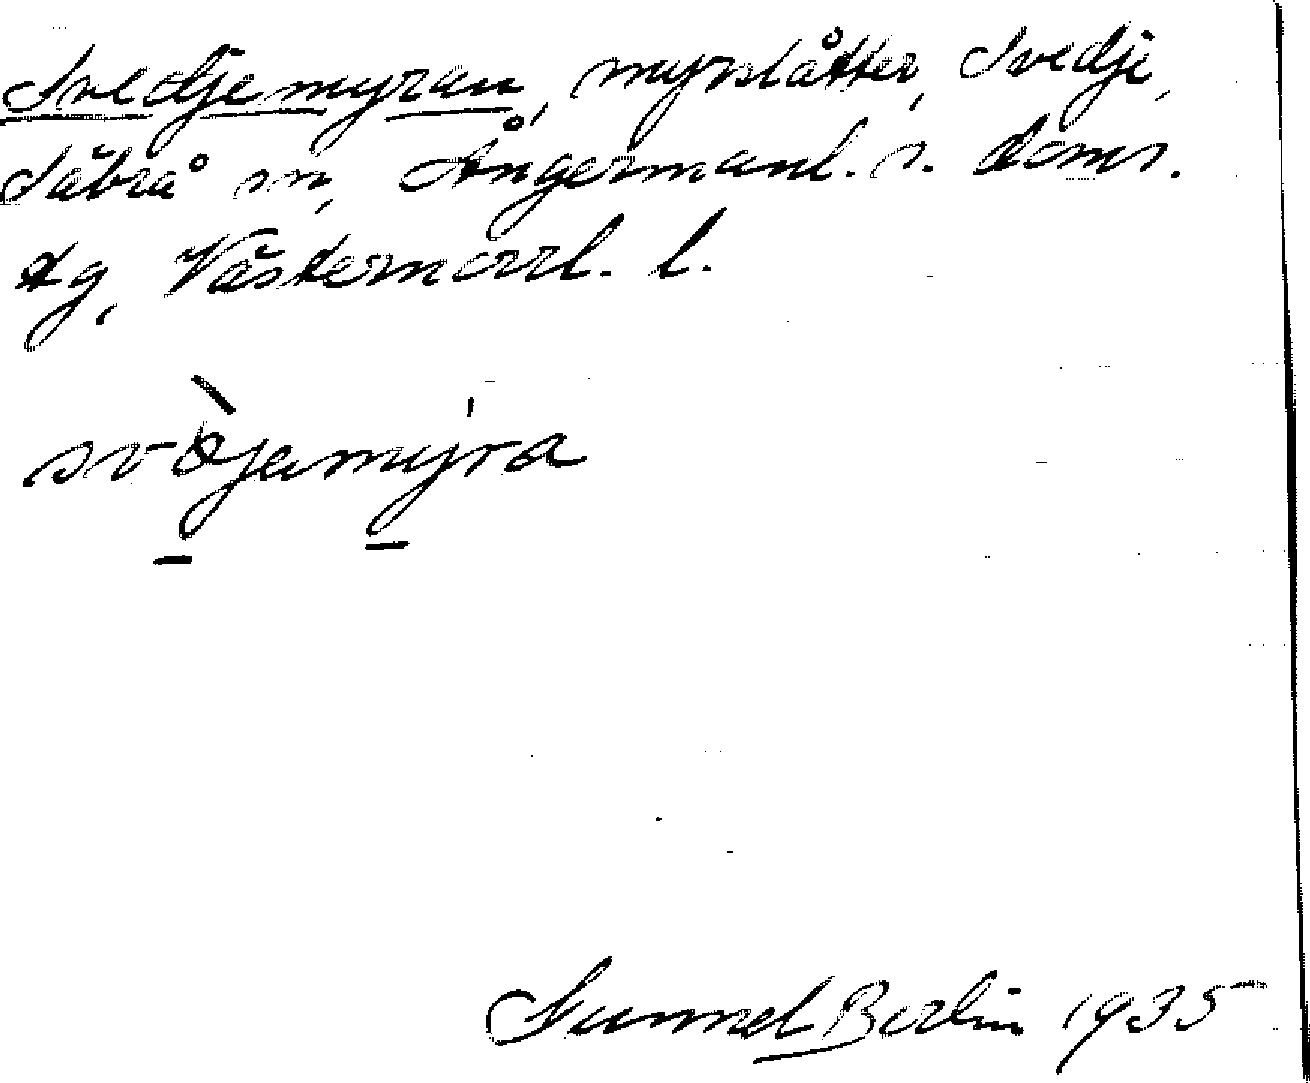 Svedjemyran, myrslåtter, Svedje,
Säbrå sn, Ångermanl. s. doms.
tg, Västernorrl. l.
svòjamyra
Gunnel Berlin 1935